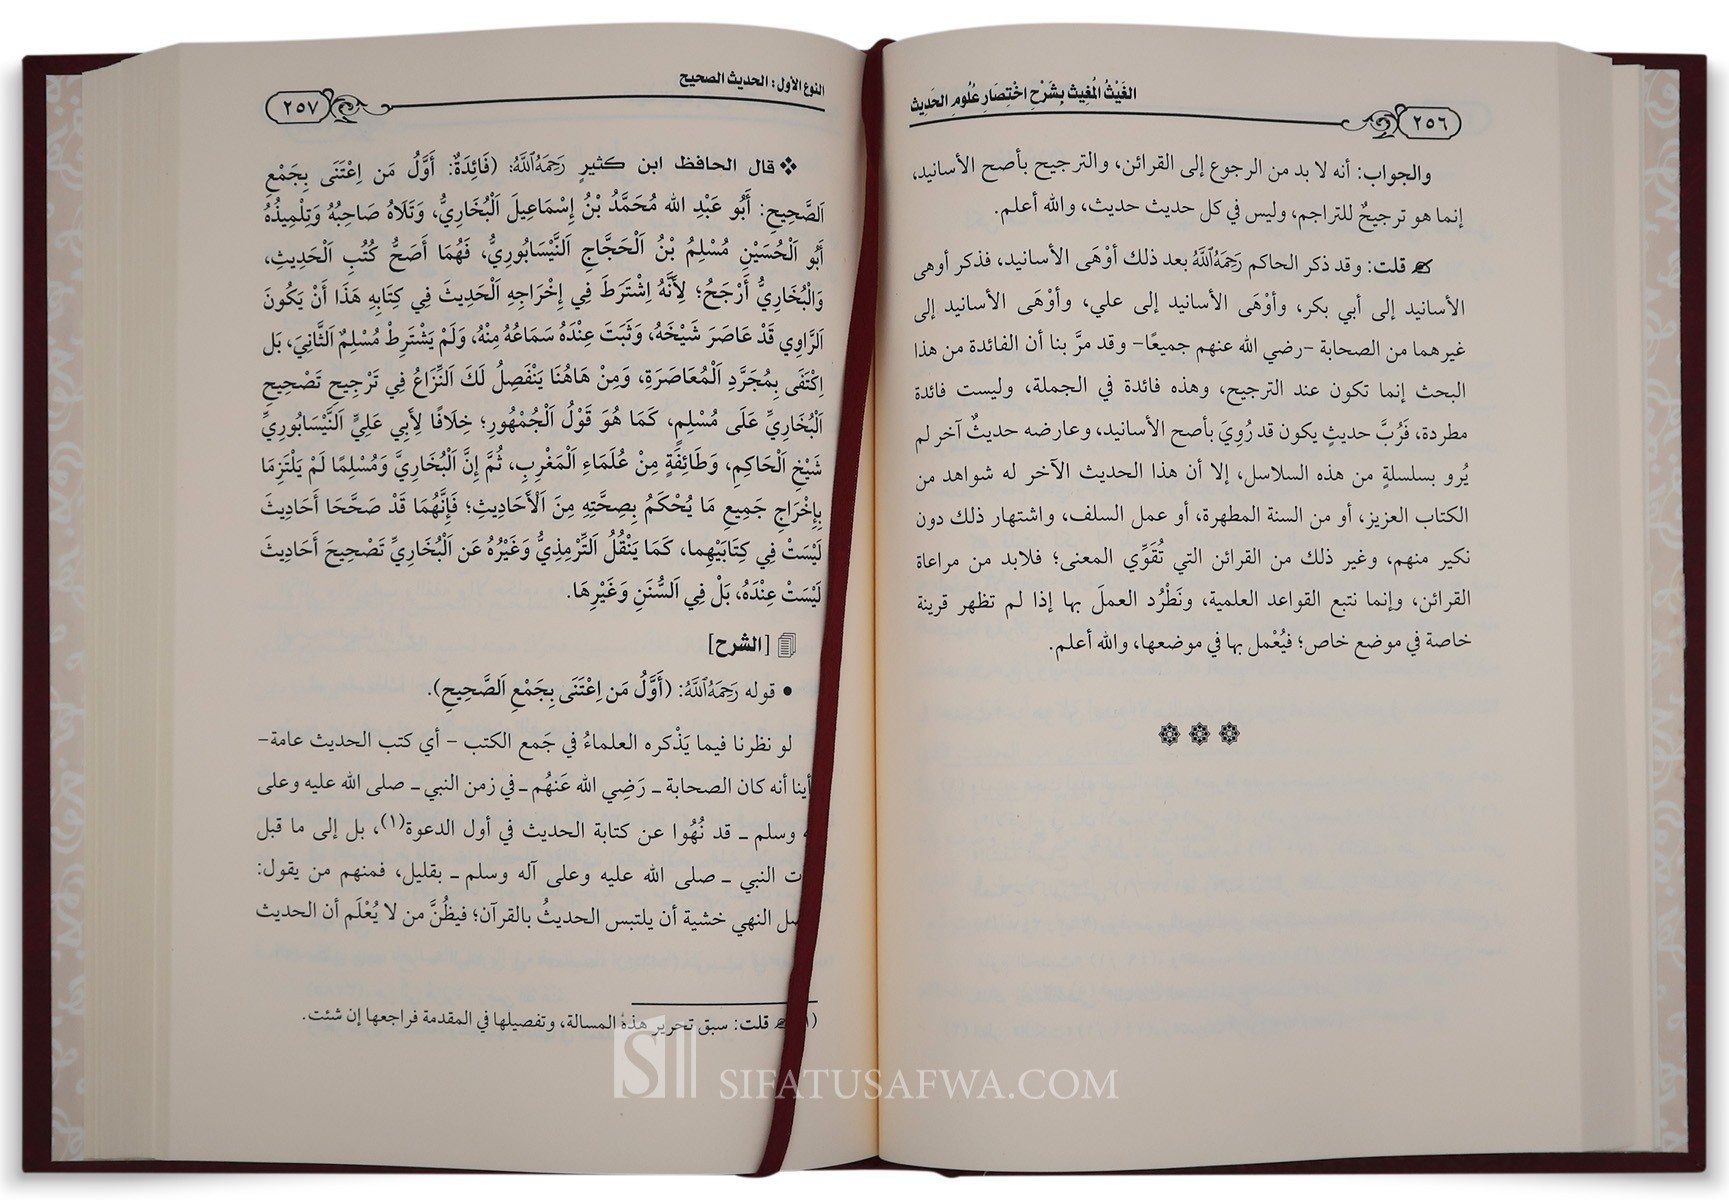 الغَيْثُ المُغِيث بِشَرْحِ اخْتِصَارِ عُلُومِ الحَدِيث
٢٥٦
والجواب: أنه لا بد من الرجوع إلى القرائن، والترجيح بأصح الأسانيد،
إنما هو ترجيحٌ للتراجم، وليس في كل حديث حديث، والله أعلم.
قلت: وقد ذكر الحاكم رَحِمَهُ ٱللَّهُ بعد ذلك أوْهَى الأسانيد، فذكر أوهى
الأسانيد إلى أبي بكر، وأوْهَى الأسانيد إلى علي، وأوْهَى الأسانيد إلى
غيرهما من الصحابة -رضي الله عنهم جميعًا- وقد مرَّ بنا أن الفائدة من هذا
البحث إنما تكون عند الترجيح، وهذه فائدة في الجملة، وليست فائدة
مطردة، فَرُبَّ حديثٍ يكون قد رُوِيَ بأصح الأسانيد، وعارضه حديثٌ آخر لم
يُرو بسلسلةٍ من هذه السلاسل، إلا أن هذا الحديث الآخر له شواهد من
الكتاب العزيز، أو من السنة المطهرة، أو عمل السلف، واشتهار ذلك دون
نكير منهم، وغير ذلك من القرائن التي تُقَوِّي المعنى؛ فلابد من مراعاة
القرائن، وإنما نتبع القواعد العلمية، ونَطْرُد العملَ بها إذا لم تظهر قرينة
خاصة في موضع خاص؛ فيُعْمل بها في موضعها، والله أعلم.
النوع الأول: الحديث الصحيح
٢٥٧
قال الحافظ ابن كثيرٍ رَحِمَهُ ٱللَّهُ: (فَائِدَةٌ: أَوَّلُ مَن اِعْتَنَى بِجَمْعِ
اَلصَّحِيحِ: أَبُو عَبْدِ الله مُحَمَّدُ بْنُ إِسْمَاعِيلَ اَلْبُخَارِيُّ، وَتَلَاهُ صَاحِبُهُ وَتِلْمِيذُهُ
أَبُو اَلْحُسَيْنِ مُسْلِمُ بْنُ اَلْحَجَّاجِ اَلنَّيْسَابُورِيُّ، فَهُمَا أَصَحُّ كُتُبِ اَلْحَدِيثِ،
وَالْبُخَارِيُّ أَرْجَحُ؛ لِأَنَّهُ اِشْتَرَطَ فِي إِخْرَاجِهِ اَلْحَدِيثَ فِي كِتَابِهِ هَذَا أَنْ يَكُونَ
اَلرَّاوِي قَدْ عَاصَرَ شَيْخَهُ، وَثَبَتَ عِنْدَهُ سَمَاعُهُ مِنْهُ، وَلَمْ يَشْتَرِطْ مُسْلِمٌ اَلثَّانِيَ، بَل
اِكْتَفَى بِمُجَرَّدِ اَلْمُعَاصَرَةِ، وَمِنْ هَاهُنَا يَنْفَصِلُ لَكَ اَلنِّزَاعُ فِي تَرْجِيحِ تَصْحِيحِ
اَلْبُخَارِيِّ عَلَى مُسْلِمٍ، كَمَا هُوَ قَوْلُ اَلْجُمْهُورِ؛ خِلَافًا لِأَبِي عَلِيٍّ اَلنَّيْسَابُورِيِّ
شَيْخِ اَلْحَاكِمِ، وَطَائِفَةٍ مِنْ عُلَمَاءِ اَلْمَغْرِبِ، ثُمَّ إِنَّ اَلْبُخَارِيَّ وَمُسْلِمًا لَمْ يَلْتَزِمَا
بِإِخْرَاجِ جَمِيعِ مَا يُحْكَمُ بِصِحَّتِهِ مِنَ اَلْأَحَادِيثِ؛ فَإِنَّهُمَا قَدْ صَحَّحَا أَحَادِيثَ
لَيْسَتْ فِي كِتَابَيْهِما، كَمَا يَنْقُلُ اَلتِّرْمِذِيُّ وَغَيْرُهُ عَن اَلْبُخَارِيِّ تَصْحِيحَ أَحَادِيثَ
لَيْسَتْ عِنْدَهُ، بَلْ فِي اَلسُّنَنِ وَغَيْرِهَا.
[الشرح]
• قوله رَحِمَهُ ٱللَّهُ: (أَوَّلُ مَن اِعْتَنَى بِجَمْعِ اَلصَّحِيحِ).
لو نظرنا فيما يَذْكره العلماءُ في جَمع الكتب - أي كتب الحديث عامة-
أنه كان الصحابة ـ رَضِي الله عَنهُم ـ في زمن النبي ـ صلى الله عليه وعلى
وسلم ـ قد نُهُوا عن كتابة الحديث في أول الدعوة(١)، بل إلى ما قبل
النبي ـ صلى الله عليه وعلى آله وسلم ـ بقليل، فمنهم من يقول:
النهي خشية أن يلتبس الحديثُ بالقرآن؛ فيظُنَّ من لا يُعْلَم أن الحديث
(١ قلت: سبق تحرير هذه المسالة، وتفصيلها في المقدمة فراجعها إن شئت.
SIFATUSAFWA.COM